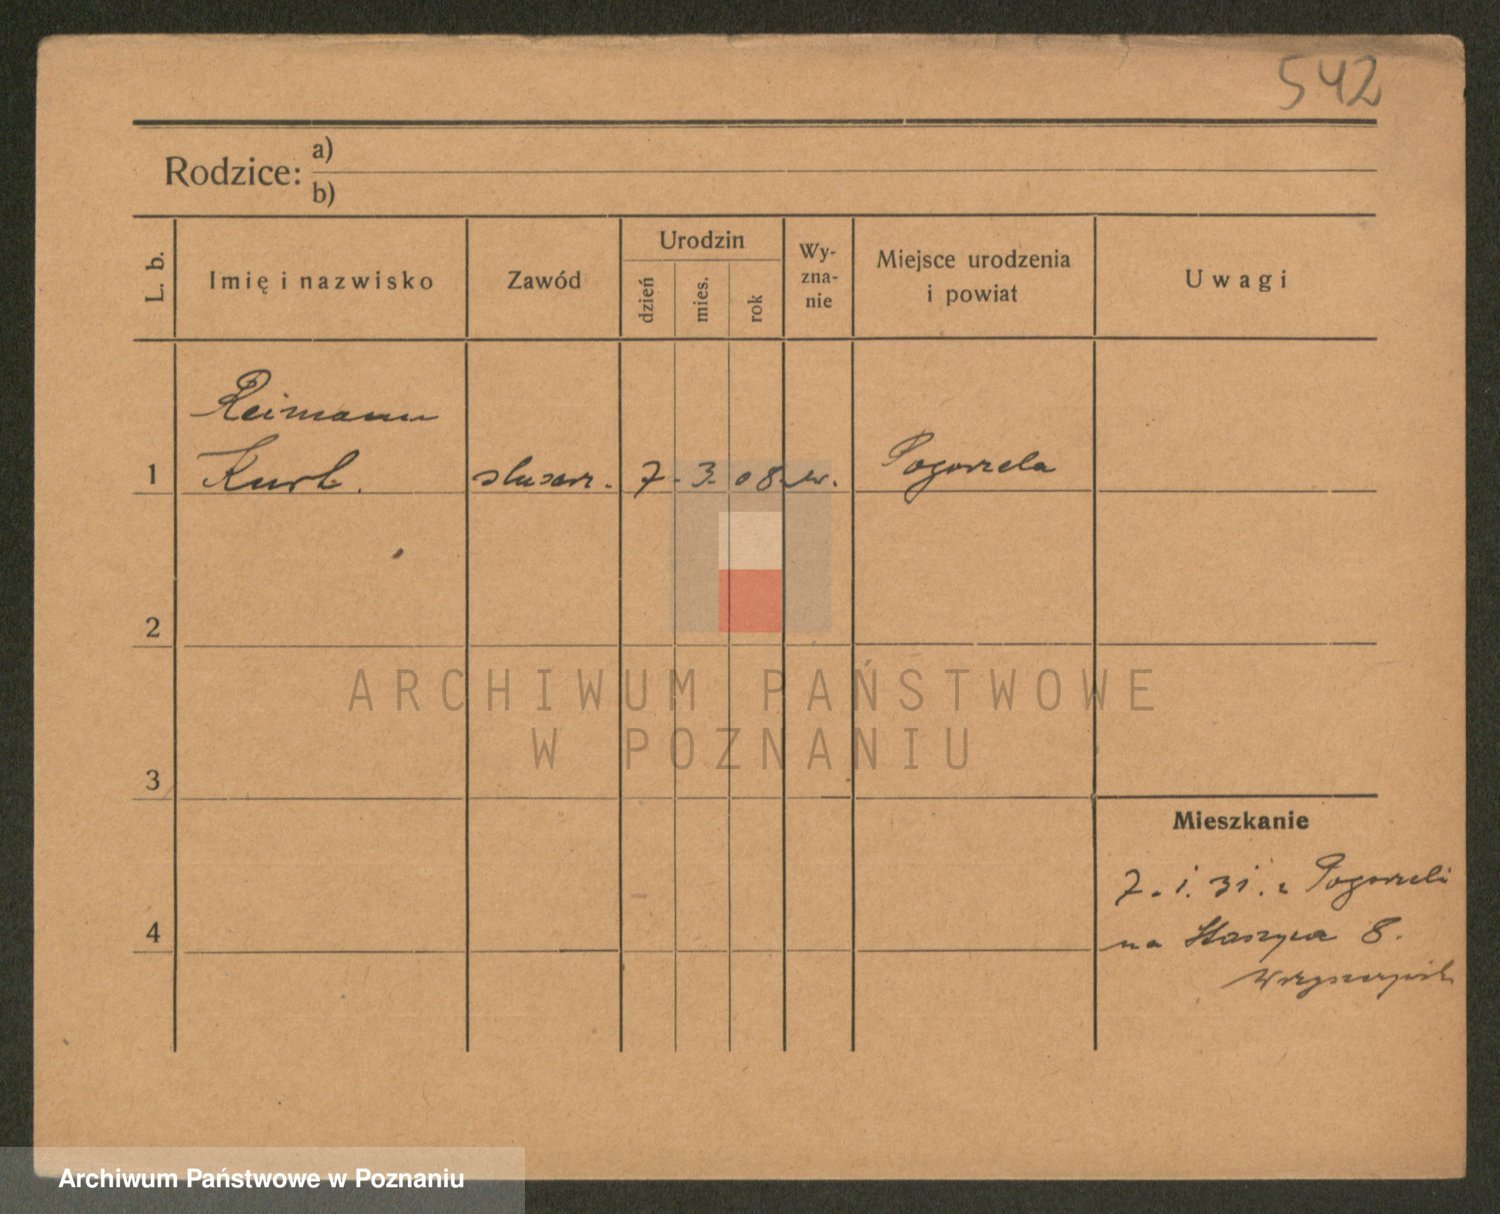 542
Rodzice: a)
b)
L. b.
Imię i nazwisko
Zawód
Urodzin
dzień
mies.
rok
Wy-
zna-
nie
Miejsce urodzenia
i powiat
Uwagi
Reimann
1 Kurt. ślusarz. 7. 3. 08. ew. Pogorzela
2
ARCHIWUM PAŃSTWOWE
W POZNANIU
3
Mieszkanie
7. 1. 31. z Pogorzeli
4
na Staszyca 8.
Archiwum Państwowe w Poznaniu